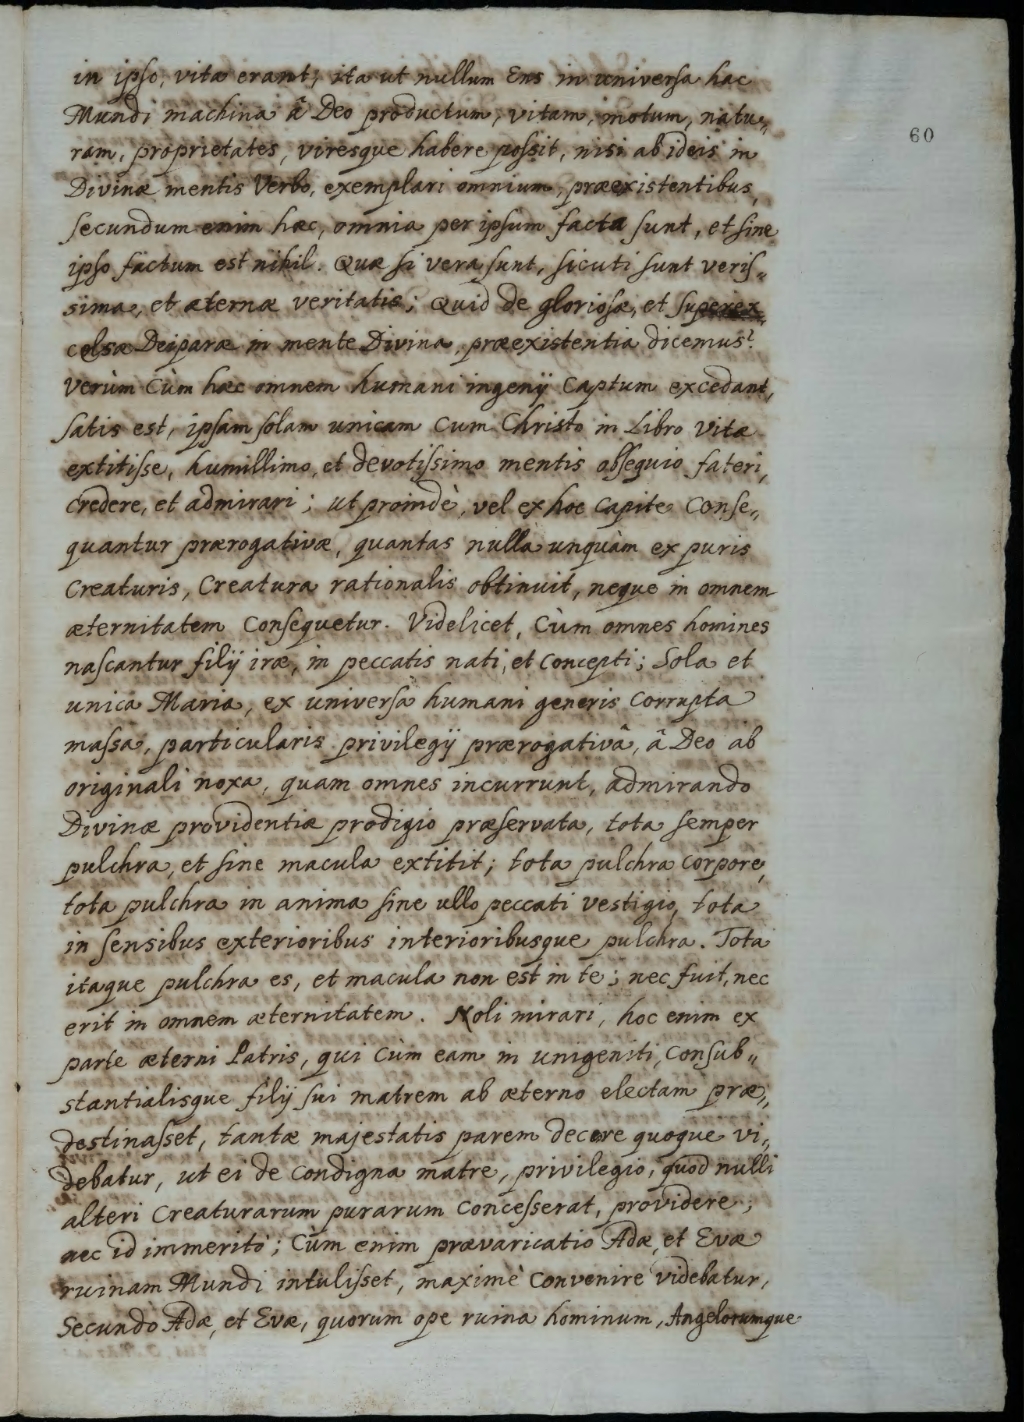 in ipso, vita erant; ita ut nullum Ens in universa hac
Mundi machina â Deo productum, vitam, motum, natu„
60
ram, proprietates, viresque habere possit, nisi ab ideis in
Divinæ mentis Verbo, exemplari omnium, præexistentibus,
secundum enim hæc, omnia per ipsum facta sunt, et sine
ipso factum est nihil. Quæ si vera sunt, sicuti sunt veris„
simæ, et æternæ veritatis; Quid de gloriosæ, et superex„
celsæ Deiparæ in mente Divina, præexistentia dicemus?
Verùm Cùm hæc omnem humani ingenij Captum excedant,
satis est, ipsam solam unicam Cum Christo in Libro Vitæ
extitisse, humillimo, et devotissimo mentis obsequio fateri,
Credere, et admirari; ut proindè, vel ex hoc Capite Conse„
quantur prærogativæ, quantas nulla unquàm ex puris
Creaturis, Creatura rationalis obtinuit, neque in omnem
æternitatem Consequetur. Videlicet, Cùm omnes homines
nascantur filij iræ, in peccatis nati, et Concepti; Sola et
unica Maria, ex universâ humani generis Corrupta
massa, particularis privilegij prærogativâ, â Deo ab
originali noxa, quam omnes incurrunt, admirando
Divinæ providentiæ prodigio præservata, tota semper
pulchra, et sine macula extitit; tota pulchra Corpore,
tota pulchra in anima sine ullo peccati vestigio, tota
in sensibus exterioribus interioribusque pulchra. Tota
itaque pulchra es, et macula non est in te; nec fuit, nec
erit in omnem æternitatem. Noli mirari, hoc enim ex
parte æterni Patris, qui Cùm eam in unigeniti, Consub„
stantialisque filij sui matrem ab æterno electam præ„
destinasset, tantæ majestatis parem decore quoque vi„
debatur, ut ei de Condigna matre, privilegio, quod nulli
alteri Creaturarum purarum Concesserat, providere;
nec id immeritò; Cùm enim prævaricatio Adæ, et Evæ
ruinam Mundi intulisset, maximè Convenire videbatur,
Secundo Adæ, et Evæ, quorum ope ruina hominum, Angelorumque